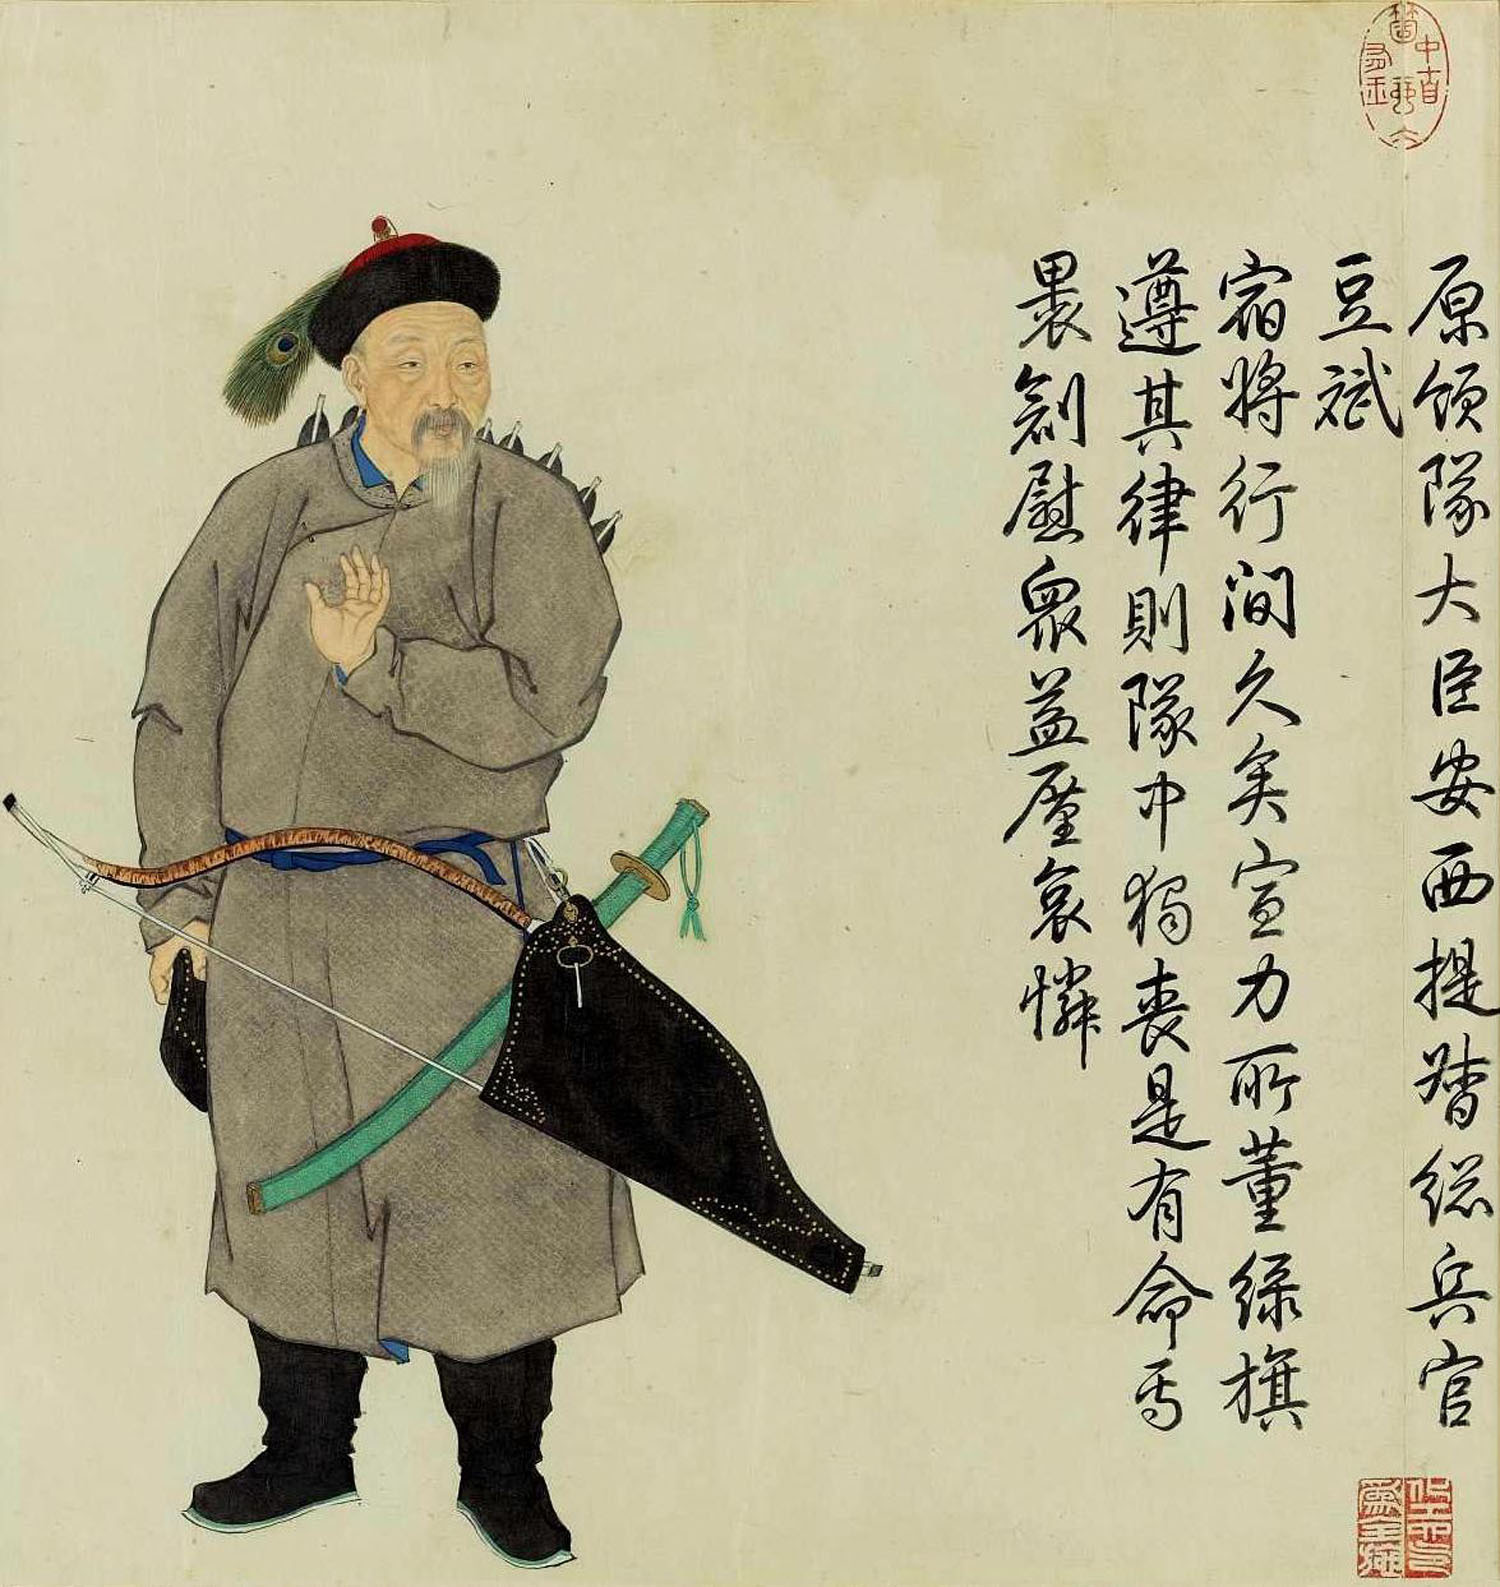 原領隊大臣安西提督緫兵官
豆斌
宿將行間久矣宣力所董綠旗
遵其律則隊中獨喪是有命焉
裹創慰衆益厪哀憐